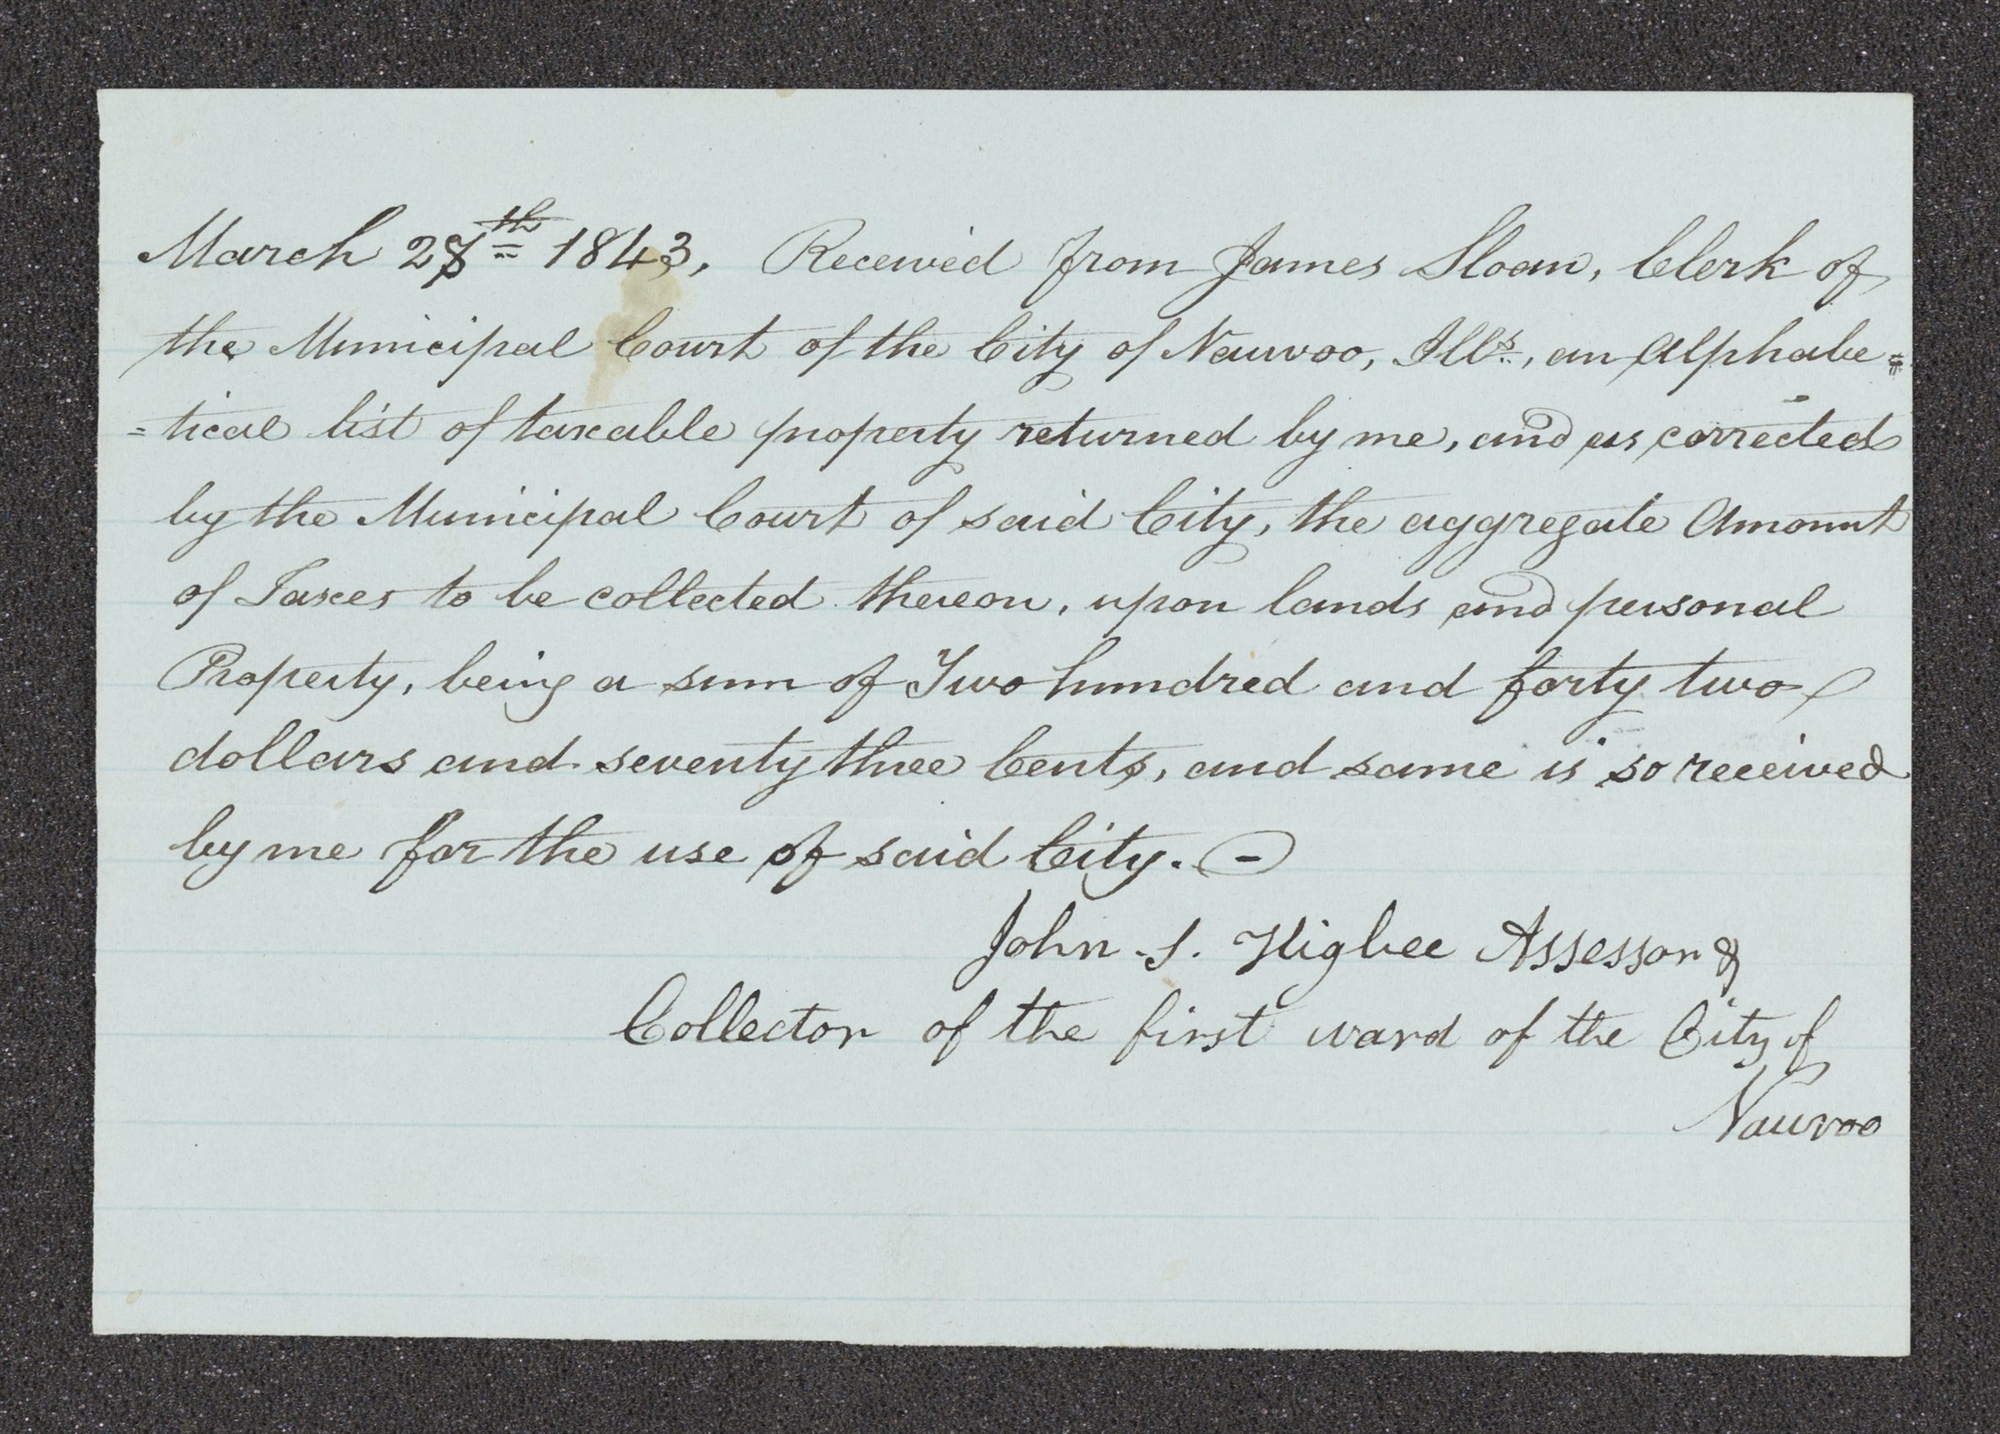 March 28th 1843, Received from James Sloan, Clerk of
the Municipal Court of the City of Nauvoo, Ills., an Alphabe=
=tical list of taxable property returned by me, and as corrected
by the Municipal Court of said City, the aggregate Amount
of Taxes to be collected thereon, upon lands and personal
Property, being a sum of Two hundred and forty two
dollars and seventy three Cents, and same is so received
by me for the use of said City. —
John S. Higbee Assessor &
Collector of the first ward of the City of
Nauvoo